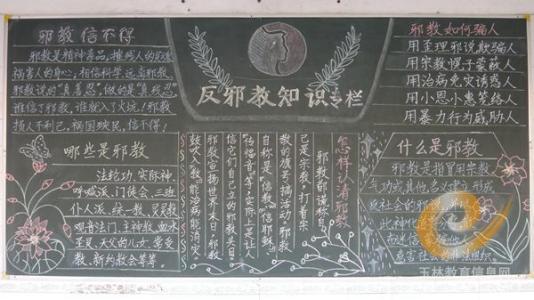 邪教信不得
邪教是精神毒品,摧残人的
祸害人的身心,相信科学远离邪教
邪教说的"真善忍",做的是"真残忍"
谁信了邪教,谁就入了火坑!邪教
损人不利己,祸国殃民,信不得!
反邪教知识专栏
邪教如何骗人
用歪理邪说欺骗人
用宗教幌子蒙蔽人
用治病免灾诱惑人
用小恩小惠笼络人
用暴力行为威胁人
哪些是邪教
法轮功、实际神、
呼喊派、门徒会、三班
仆人派、统一教、灵灵教
观音法门、主神教、血水
圣灵、天父的儿女、常受
教、新约教会等等。
怎样认清邪教
邪教都说称自
己是宗教,打着宗
教的旗号搞活动。邪教
自称是"信教""信耶稣"
"传福音"等,实际上是让人
信他们自己立的邪教头目。
邪教会宣扬世界末日,邪教
鼓吹入教能治病能消灾。
什么是邪教
邪教是指冒用宗教、
气功或其他名义建立,神化
害社会的非法组织。
玉林教育信息网